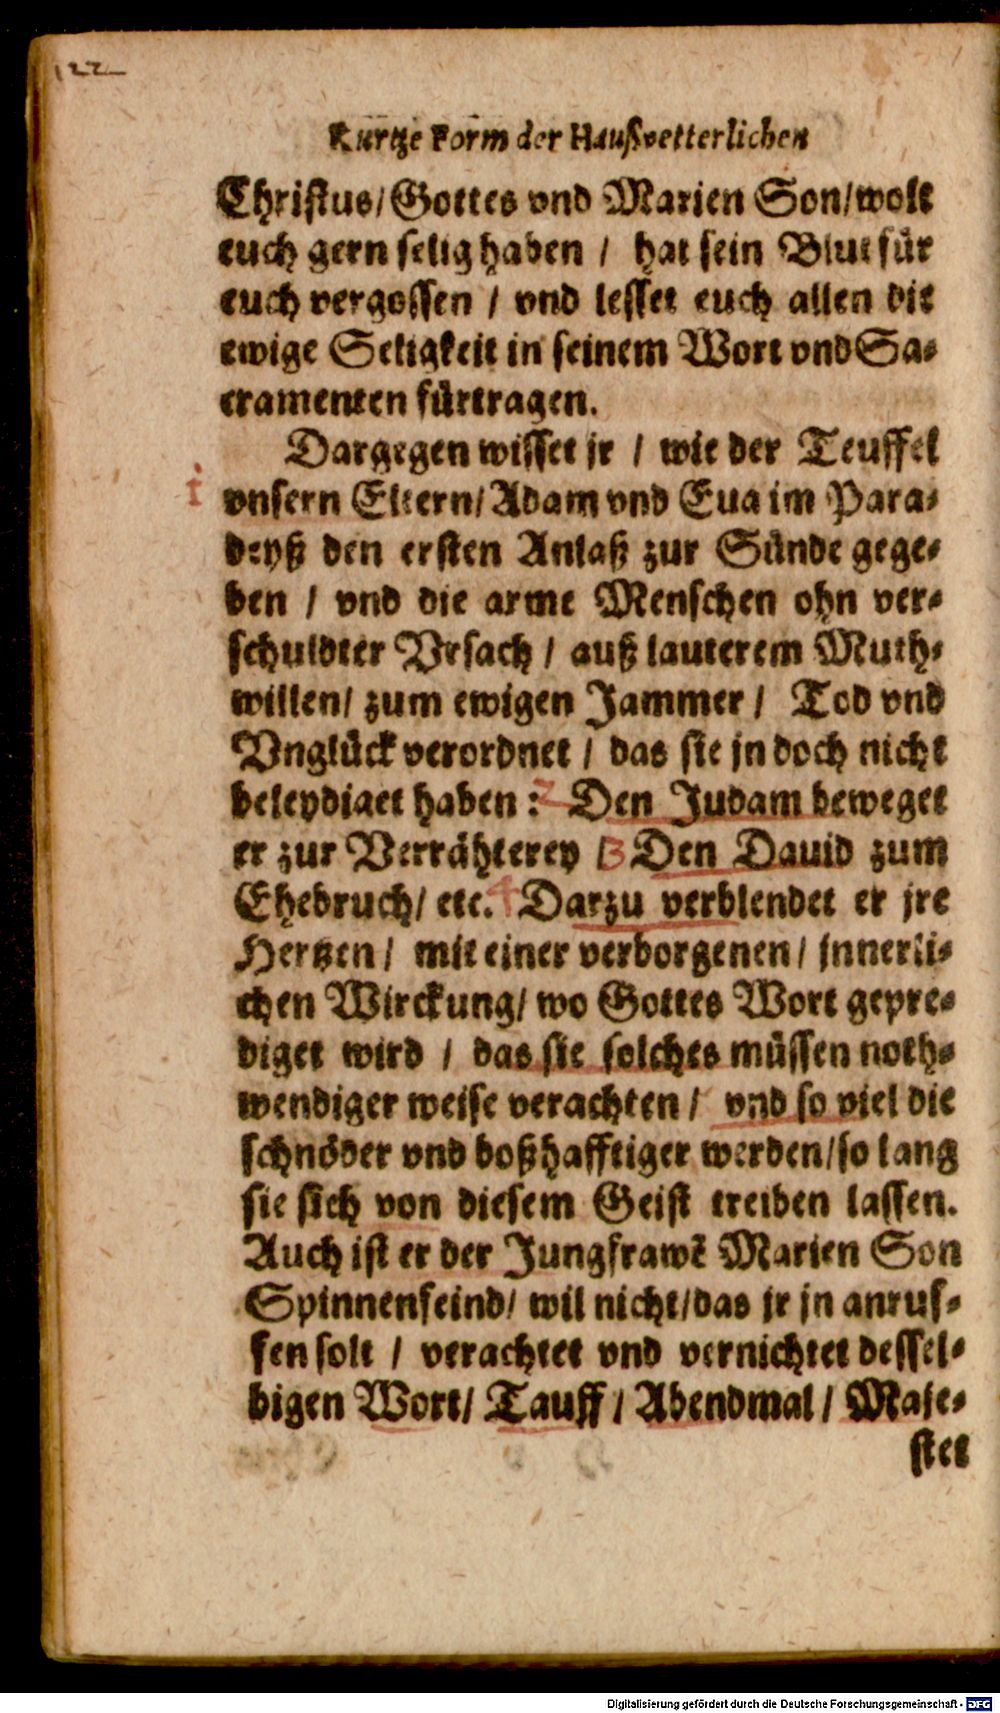 122
Kurtze Form der Haußvetterlichen
Christus/ Gottes vnd Marien Son/ wolt
euch gern selig haben / hat sein Blut für
euch vergossen / vnd lesset euch allen die
ewige Seligkeit in seinem Wort vnd Sa-
cramenten fürtragen.
Dargegen wisset jr / wie der Teuffel
1
vnsern Eltern/ Adam vnd Eua im Para-
deyß den ersten Anlaß zur Sünde gege-
ben / vnd die arme Menschen ohn ver-
schuldter Vrsach / auß lauterem Muth-
willen/ zum ewigen Jammer / Tod vnd
Vnglück verordnet / das sie jn doch nicht
beleydiget haben : 2 Den Judam beweget
er zur Verrähterey / 3 Den Dauid zum
Ehebruch/ etc. 4 Darzu verblendet er jre
Hertzen / mit einer verborgenen / jnnerli-
chen Wirckung/ wo Gottes Wort gepre-
diget wird / das sie solches müssen noth-
wendiger weise verachten / vnd so viel die
schnöder vnd boßhafftiger werden/ so lang
sie sich von diesem Geist treiben lassen.
Auch ist er der Jungfrawẽ Marien Son
Spinnenfeind/ wil nicht/ das jr jn anruf-
fen solt / verachtet vnd vernichtet dessel-
bigen Wort/ Tauff / Abendmal / Maje-
stet
Digitalisierung gefördert durch die Deutsche Forschungsgemeinschaft - DFG